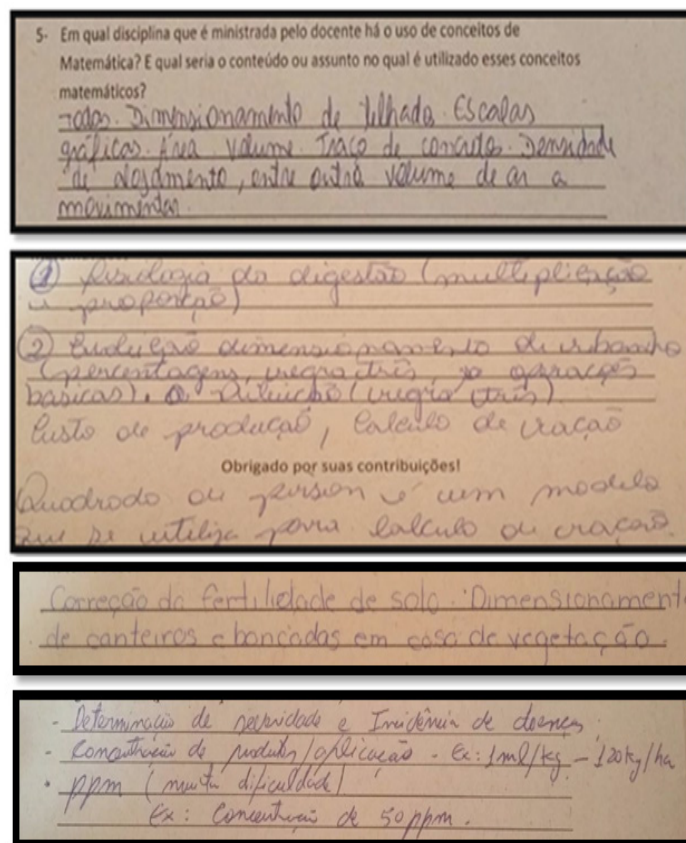 5- Em qual disciplina que é ministrada pelo docente há o uso de conceitos de
Matemática? E qual seria o conteúdo ou assunto no qual é utilizado esses conceitos
matemáticos?
Todas. Dimensionamento de telhado. Escalas
gráficas. Área volume. Traço de concreto. Densidade
de alojamento, entre outros volume de ar a
movimentar.
① Fisiologia da digestão (multiplicação
e proporção)
② Evolução dimensionamento de rebanho
(percentagem, regra três, operações
básicas). Diluição (regra três).
Custo de produção, Calculo de ração
Obrigado por suas contribuições!
Quadrado de person é um modelo
que se utiliza para calculo de ração.
Correção da fertilidade de solo. Dimensionament
de canteiros e bancadas em casa de vegetação.
- Determinação de severidade e Incidência de doenças
- Concentração de produtos/aplicação - Ex: 1ml/kg - 120kg/ha
- ppm (muita dificuldade)
Ex: Concentração de 50 ppm.